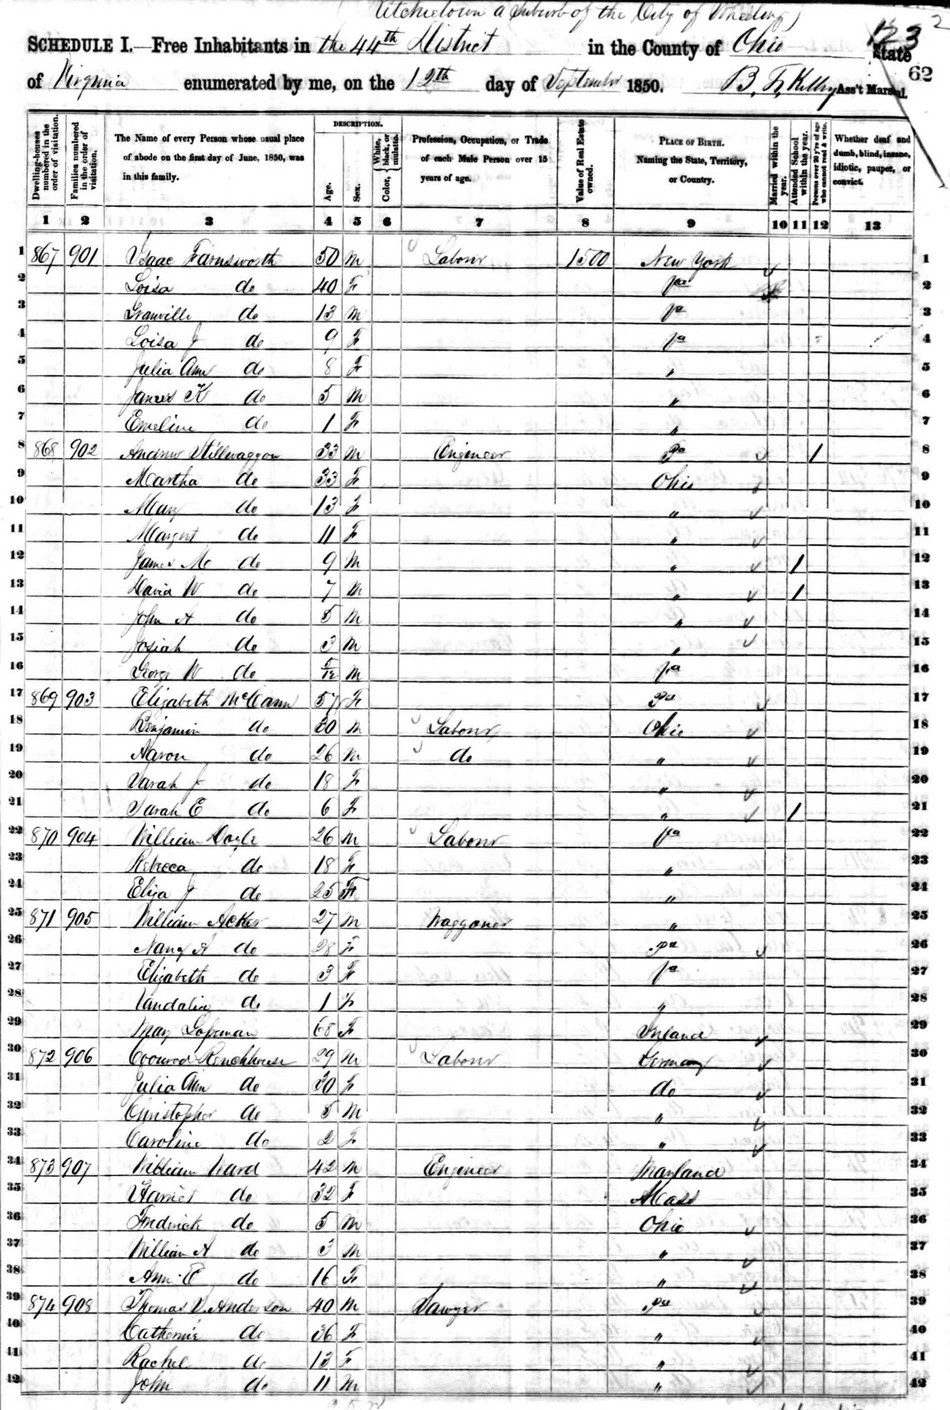 Ritchietown a Suburb of the City of Wheeling)
123 2
SCHEDULE I.—Free Inhabitants in the 44th District in the County of Ohio State
of Virginia enumerated by me, on the 12th day of September 1850. B. F. Kelly Ass't Marshal.
62
Dwelling-houses numbered in the order of visitation.
Families numbered in the order of visitation.
The Name of every Person whose usual place of abode on the first day of June, 1850, was in this family.
DESCRIPTION.
Age.
Sex.
Color, White, black, or mulatto.
Profession, Occupation, or Trade of each Male Person over 15 years of age.
Value of Real Estate owned.
PLACE OF BIRTH. Naming the State, Territory, or Country.
Married within the year.
Attended School within the year.
Persons over 20 y'rs of age who cannot read & write.
Whether deaf and dumb, blind, insane, idiotic, pauper, or convict.
1 2 3 4 5 6 7 8 9 10 11 12 13
1 867 901 Isaac Farnsworth 50 M Labour 1500 New York 1
2 Loisa do 40 F Pa 2
3 Granville do 13 M Pa 3
4 Loisa J do 9 F Pa 4
5 Julia Ann do 8 F " 5
6 James K do 5 M " 6
7 Emeline do 1 F " 7
8 868 902 Andrew Stillwaggon 33 M Engineer Pa 1 8
9 Martha do 33 F Ohio 9
10 Mary do 13 F " 10
11 Margret do 11 F " 11
12 James Mc do 9 M " 1 12
13 David W do 7 M " 1 13
14 John A do 5 M " 14
15 Josiah do 3 M " 15
16 George W do M Pa 16
17 869 903 Elizabeth McCann 57 F Pa 17
18 Benjamin do 30 M Labour Ohio 18
19 Aaron do 26 M do " 19
20 Sarah J do 18 F " 20
21 Sarah E do 6 F " 1 21
22 870 904 William Doyle 26 M Labour Pa 22
23 Rebecca do 18 F " 23
24 Eliza J do 25 F " 24
25 871 905 William Acker 27 M Waggoner " 25
26 Nancy A do 28 F Pa 26
27 Elizabeth do 3 F Pa 27
28 Vandalia do 1 F " 28
29 May 68 F Ireland 29
30 872 906 29 M Labour Germany 30
31 Julia Ann do 30 F do 31
32 Christopher do 5 M " 32
33 Caroline do 2 F " 33
34 873 907 William Ward 42 M Engineer Maryland 34
35 Harriet do 32 F Mass 35
36 Fredrick do 5 M Ohio 36
37 William A do 3 M " 37
38 Ann E do 16 F " 38
39 874 908 Thomas V. Anderson 40 M Sawyer Pa 39
40 Catherine do 36 F " 40
41 Rachel do 13 F " 41
42 John do 11 M " 42